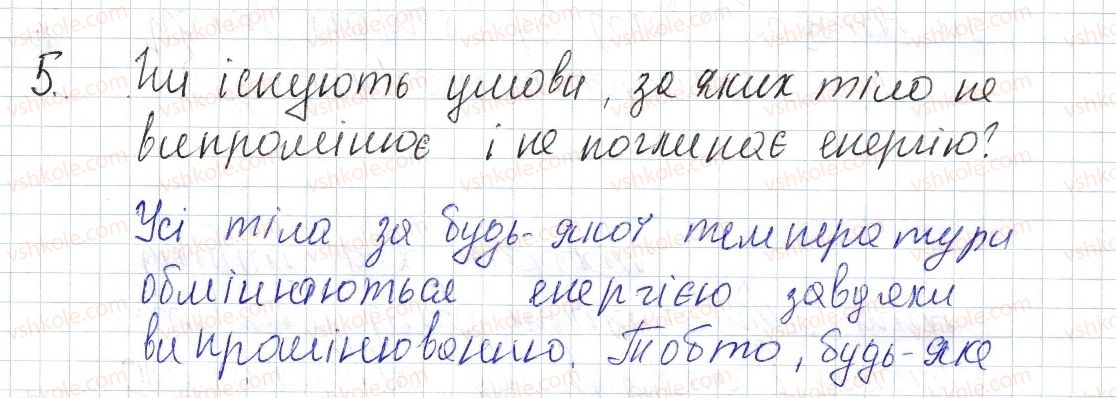 5. Чи існують умови, за яких тіло не
випромінює і не поглинає енергію?
Усі тіла за будь-якої температури
обмінюються енергією завдяки
випромінюванню. Тобто, будь-яке